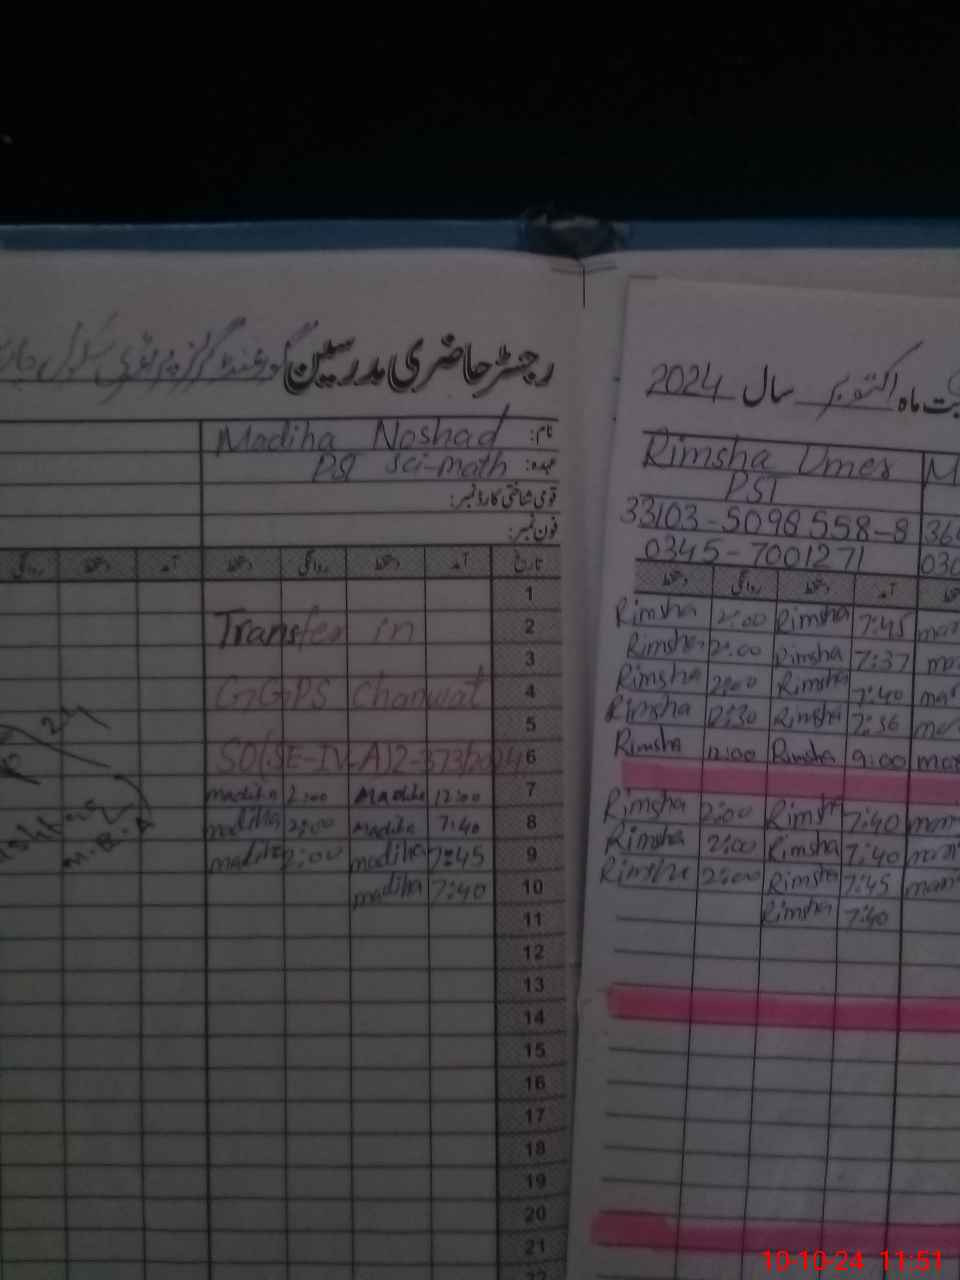 رجسٹر حاضری مدرسین گورنمنٹ گرلز پرائمری سکول
نام: Madiha Noshad
عہدہ: PST Sci-math
قومی شناختی کارڈ نمبر:
فون نمبر:
تاریخ آمد دستخط روانگی دستخط آمد دستخط روانگی
1
2 Transfer in
3
4 GGPS Chanwat
5
6 SO(SE-IV-A)2-373/2024
7 Madiha 12:00 madiha 2:00
8 Madiha 7:40 madiha 2:00
9 madiha 7:45 madiha 2:00
10 madiha 7:40
11
12
13
14
15
16
17
18
19
20
21
24
M.B.A
ماہ اکتوبر سال 2024
Rimsha Umer
PST
33103-5098558-8
0345-7001271
دستخط روانگی دستخط آمد
Rimsha 2:00 Rimsha 7:45
Rimsha 2:00 Rimsha 7:37
Rimsha 2:00 Rimsha 7:40
Rimsha 12:30 Rimsha 7:36
Rimsha 12:00 Rimsha 9:00
Rimsha 2:00 Rimsha 7:40
Rimsha 2:00 Rimsha 7:40
Rimsha 2:00 Rimsha 7:45
Rimsha 7:40
10-10-24 11:51